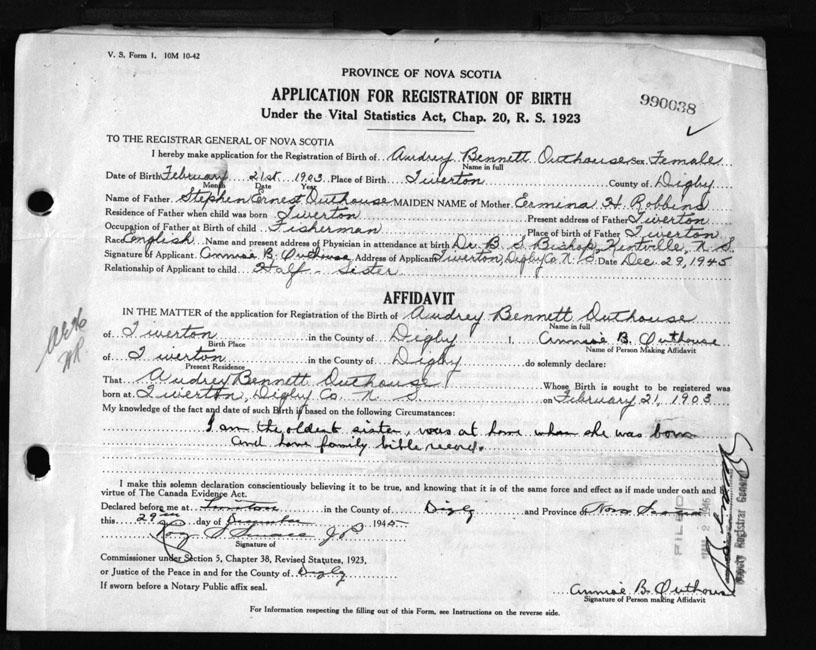 V. S. Form 1. 10M 10-42
PROVINCE OF NOVA SCOTIA
APPLICATION FOR REGISTRATION OF BIRTH
990038
Under the Vital Statistics Act, Chap. 20, R. S. 1923
TO THE REGISTRAR GENERAL OF NOVA SCOTIA
I hereby make application for the Registration of Birth of Audrey Bennett Outhouse Sex Female
Name in full
Date of Birth February 21st 1903 Place of Birth Tiverton County of Digby
Month Date Year
Name of Father Stephen Ernest Outhouse MAIDEN NAME of Mother Ermina H. Robbins
Residence of Father when child was born Tiverton Present address of Father Tiverton
Occupation of Father at Birth of child Fisherman Place of birth of Father Tiverton
Race English Name and present address of Physician in attendance at birth Dr. B. S. Bishop, Kentville, N. S.
Signature of Applicant Annie B. Outhouse Address of Applicant Tiverton, Digby Co. N. S. Date Dec. 29, 1945
Relationship of Applicant to child Half-sister
AFFIDAVIT
IN THE MATTER of the application for Registration of the Birth of Audrey Bennett Outhouse
Name in full
of Tiverton in the County of Digby I, Annie B. Outhouse
Birth Place Name of Person Making Affidavit
of Tiverton in the County of Digby do solemnly declare:
Present Residence
That Audrey Bennett Outhouse Whose Birth is sought to be registered was
born at Tiverton, Digby Co. N. S. on February 21, 1903
My knowledge of the fact and date of such Birth is based on the following Circumstances:
I am the oldest sister, was at home when she was born
and have family bible record.
I make this solemn declaration conscientiously believing it to be true, and knowing that it is of the same force and effect as if made under oath and by
virtue of The Canada Evidence Act.
Declared before me at in the County of Digby and Province of Nova Scotia
this 29th day of December 1945
J P
Signature of
Commissioner under Section 5, Chapter 38, Revised Statutes, 1923,
or Justice of the Peace in and for the County of Digby
If sworn before a Notary Public affix seal.
Annie B. Outhouse
Signature of Person making Affidavit
For Information respecting the filling out of this Form, see Instructions on the reverse side.
FILED
2 1946
Deputy Registrar General